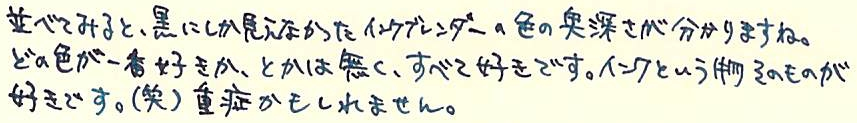 並べてみると、黒にしか見えなかったインクブレンダーの色の奥深さが分かりますね。
どの色が一番好きか、とかは無く、すべて好きです。インクという物そのものが
好きです。(笑)重症かもしれません。